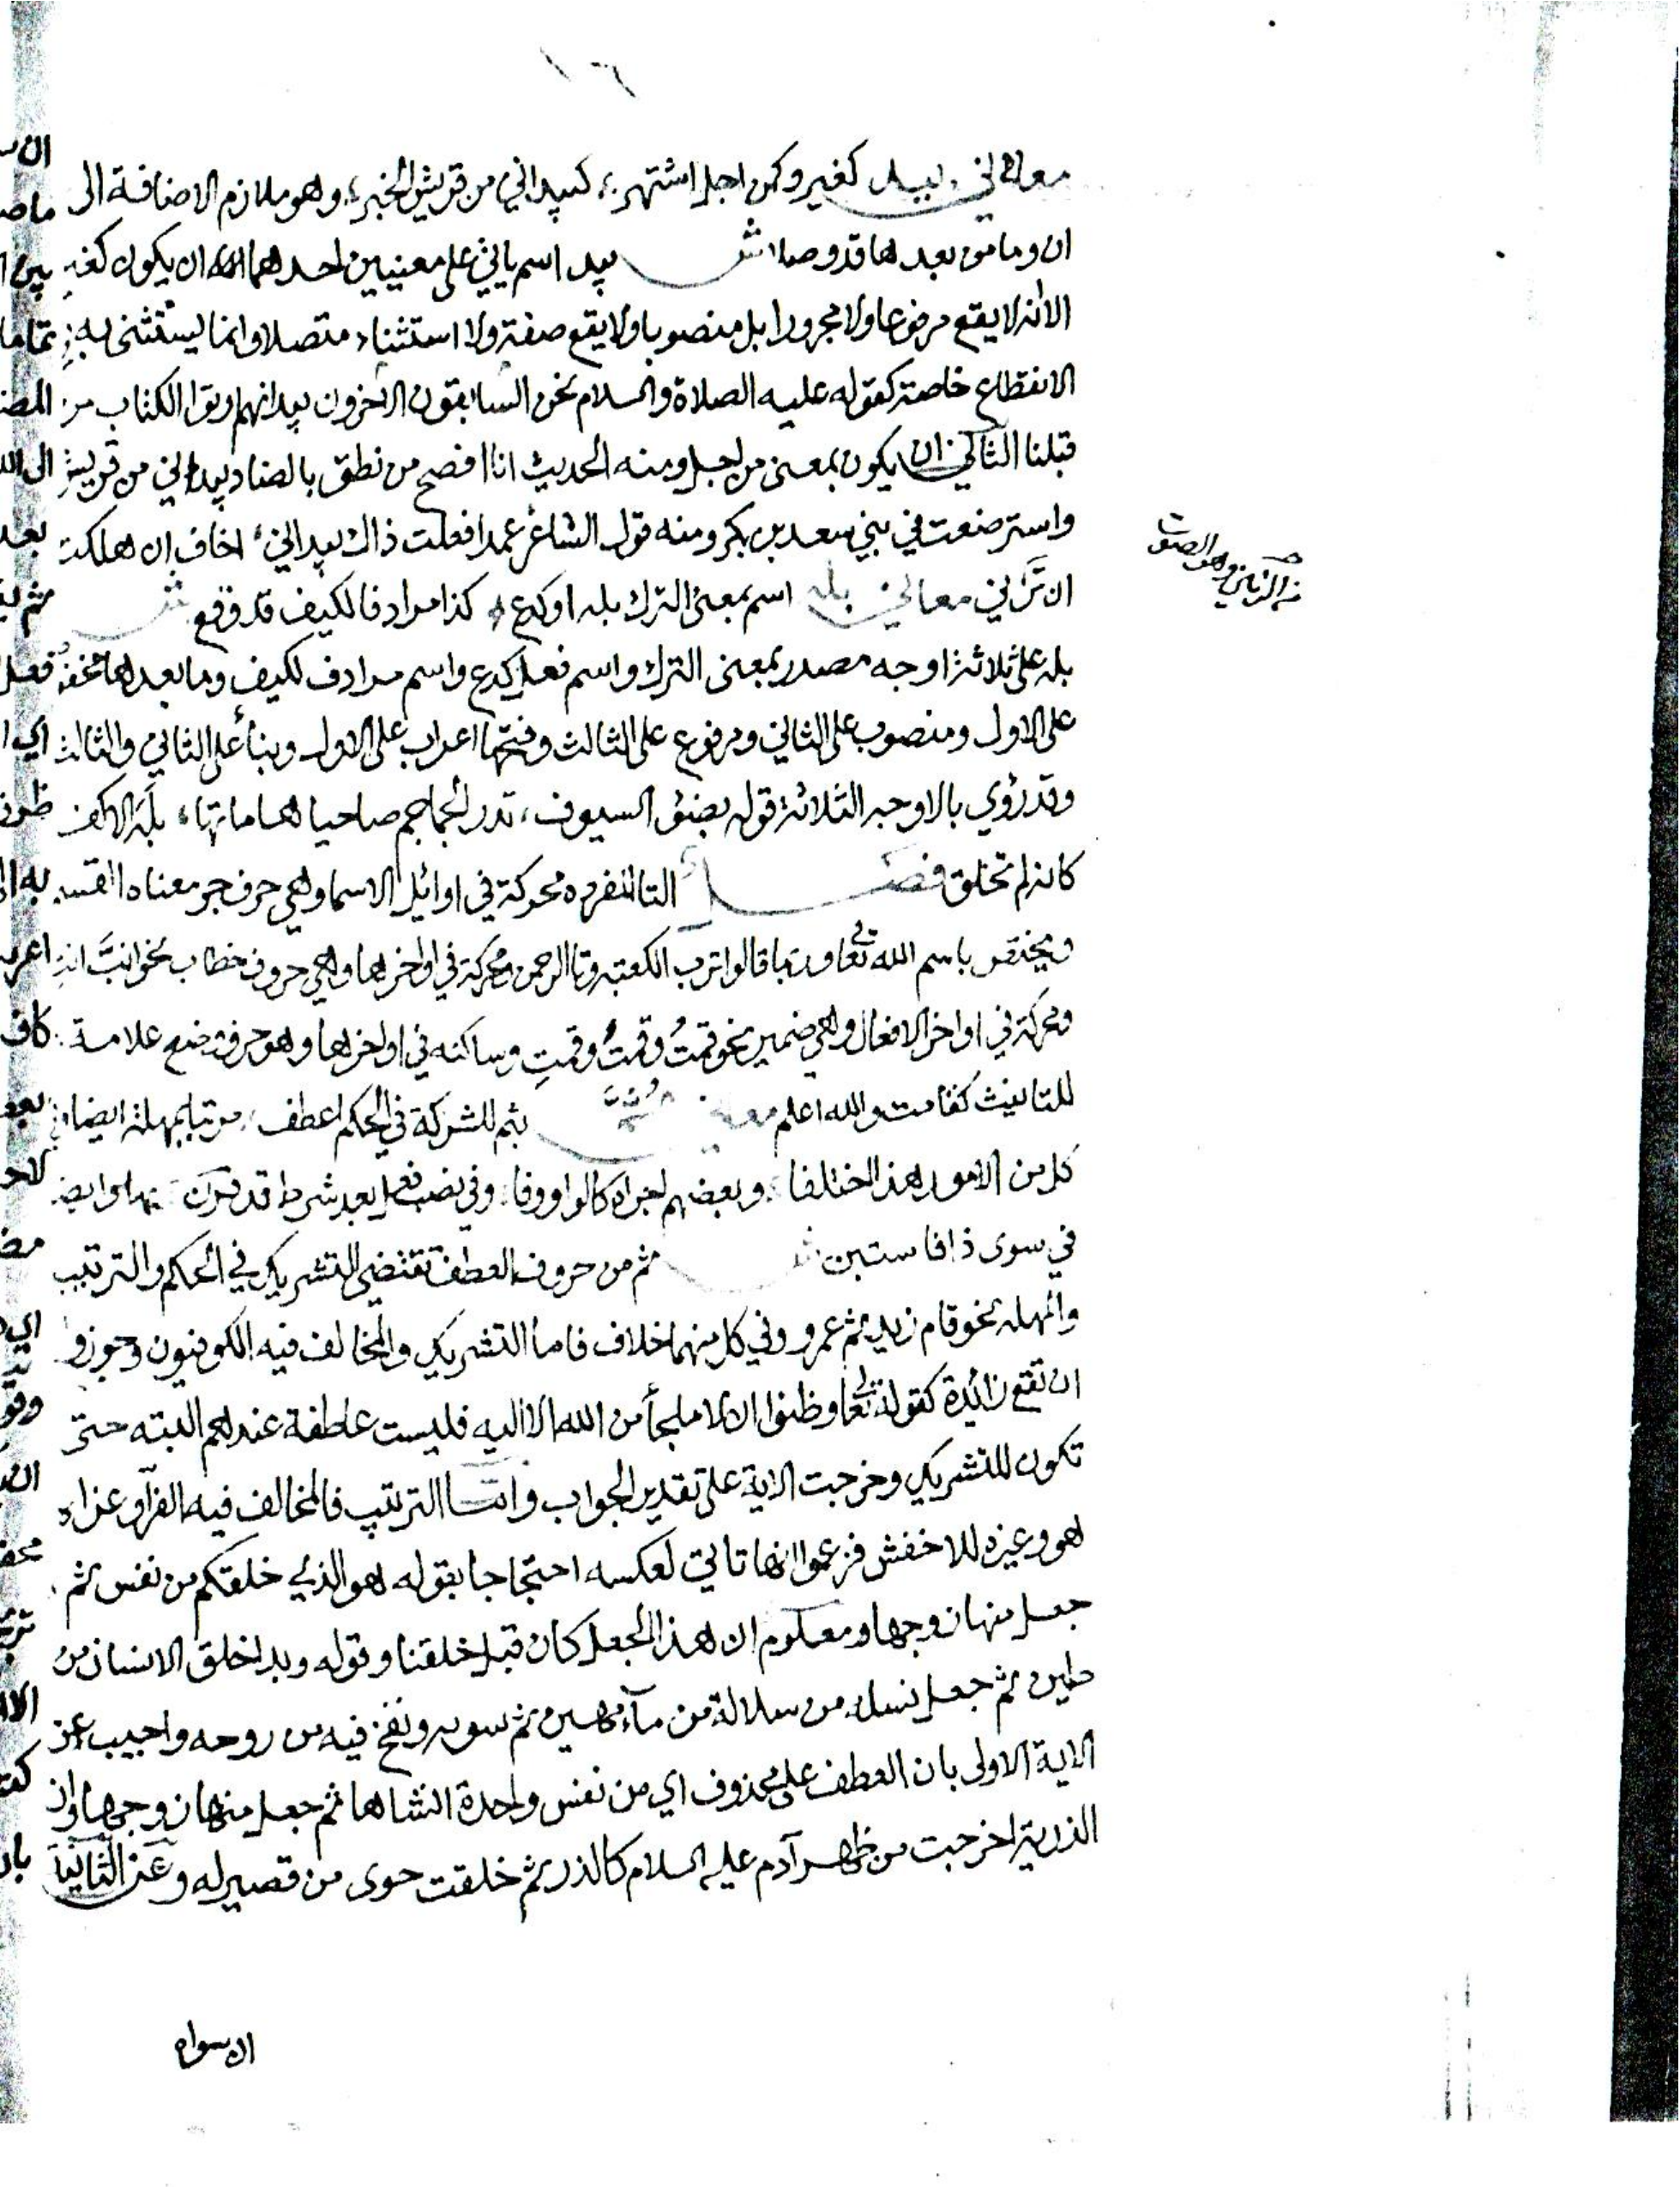 معاني بيد كغير وكمن اجل اشتهر، كبيد اني من قريش الخبر، وهو ملازم الاضافة الى
ان وما من بعدها قد وصلا ش بيد اسم ياتي على معنيين احدهما ان يكون كغير
الا انه لا يقع مرفوعا ولا مجرورا بل منصوبا ولا يقع صفة ولا استثناء متصلا وانما يستثنى به في
الانقطاع خاصة كقوله عليه الصلاة والسلام نحن السابقون الاخرون بيد انهم اوتوا الكتاب من
قبلنا الثاني ان يكون بمعنى من اجل ومنه الحديث انا افصح من نطق بالضاد بيد اني من قريش
واسترضعت في بني سعد بن بكر ومنه قول الشاعر عمدا فعلت ذاك بيد اني، اخاف ان هلكت
ان ترني معاني بله اسم بمعنى الترك بله او كدع، كذا مرادفا لكيف قد وقع ش
بله على ثلاثة اوجه مصدر بمعنى الترك واسم فعل كدع واسم مرادف لكيف وما بعدها مخفوض
على الاول ومنصوب على الثاني ومرفوع على الثالث وفتحها اعراب على الاول وبناء على الثاني والثالث
وقد روي بالاوجه الثلاثة قوله يصف السيوف، تذر الجماجم ضاحيا هاماتها، بله الاكف
كانها لم تخلق فصل التا المفرده محركة في اوائل الاسما وهي حرف جر معناه القسم
ويختص باسم الله تعالى وربما قالوا ترب الكعبة وتا الرحمن ومحركة في اواخرها وهي حرف خطاب نحو انتَ انتِ
ومحركة في اواخر الافعال وهي ضمير نحو قمتُ وقمتَ وقمتِ وساكنه في اواخرها وهو حرف وضع علامة
للتانيث كقامت والله اعلم معاني ثم بثم للشركة في الحكم اعطف، مرتبا بمهلة ايضا وفي
كل من الامور هذا اختلفا، وبعضهم اجراه كالواو وفا، وفي نصب فعل بعد شرط قد قرن بها وايضا
في سوى ذا فاستبن ش ثم من حروف العطف تقتضي التشريك في الحكم والترتيب
والمهله نحو قام زيد ثم عمرو وفي كل منهما خلاف فاما التشريك والمخالف فيه الكوفيون وجوزوا
ان تقع زائدة كقوله تعالى وظنوا ان لا ملجأ من الله الا اليه فليست عاطفة عندهم البته حتى
تكون للتشريك وخرجت الاية على تقدير الجواب واما الترتيب فالمخالف فيه الفرآ وعزاه
هو وغيره للاخفش فزعموا انها تاتي لعكسه احتجاجا بقوله هو الذي خلقكم من نفس ثم
جعل منها زوجها ومعلوم ان هذا الجعل كان قبل خلقنا وقوله وبدا خلق الانسان من
طين ثم جعل نسله من سلالة من مآء مهين ثم سويه ونفخ فيه من روحه واجيب عن
الاية الاولى بان العطف على محذوف اي من نفس واحدة انشاها ثم جعل منها زوجها وان
الذرية اخرجت من ظهر آدم عليه السلام كالذر ثم خلقت حوى من قصيره وعن الثانية
ان سواه